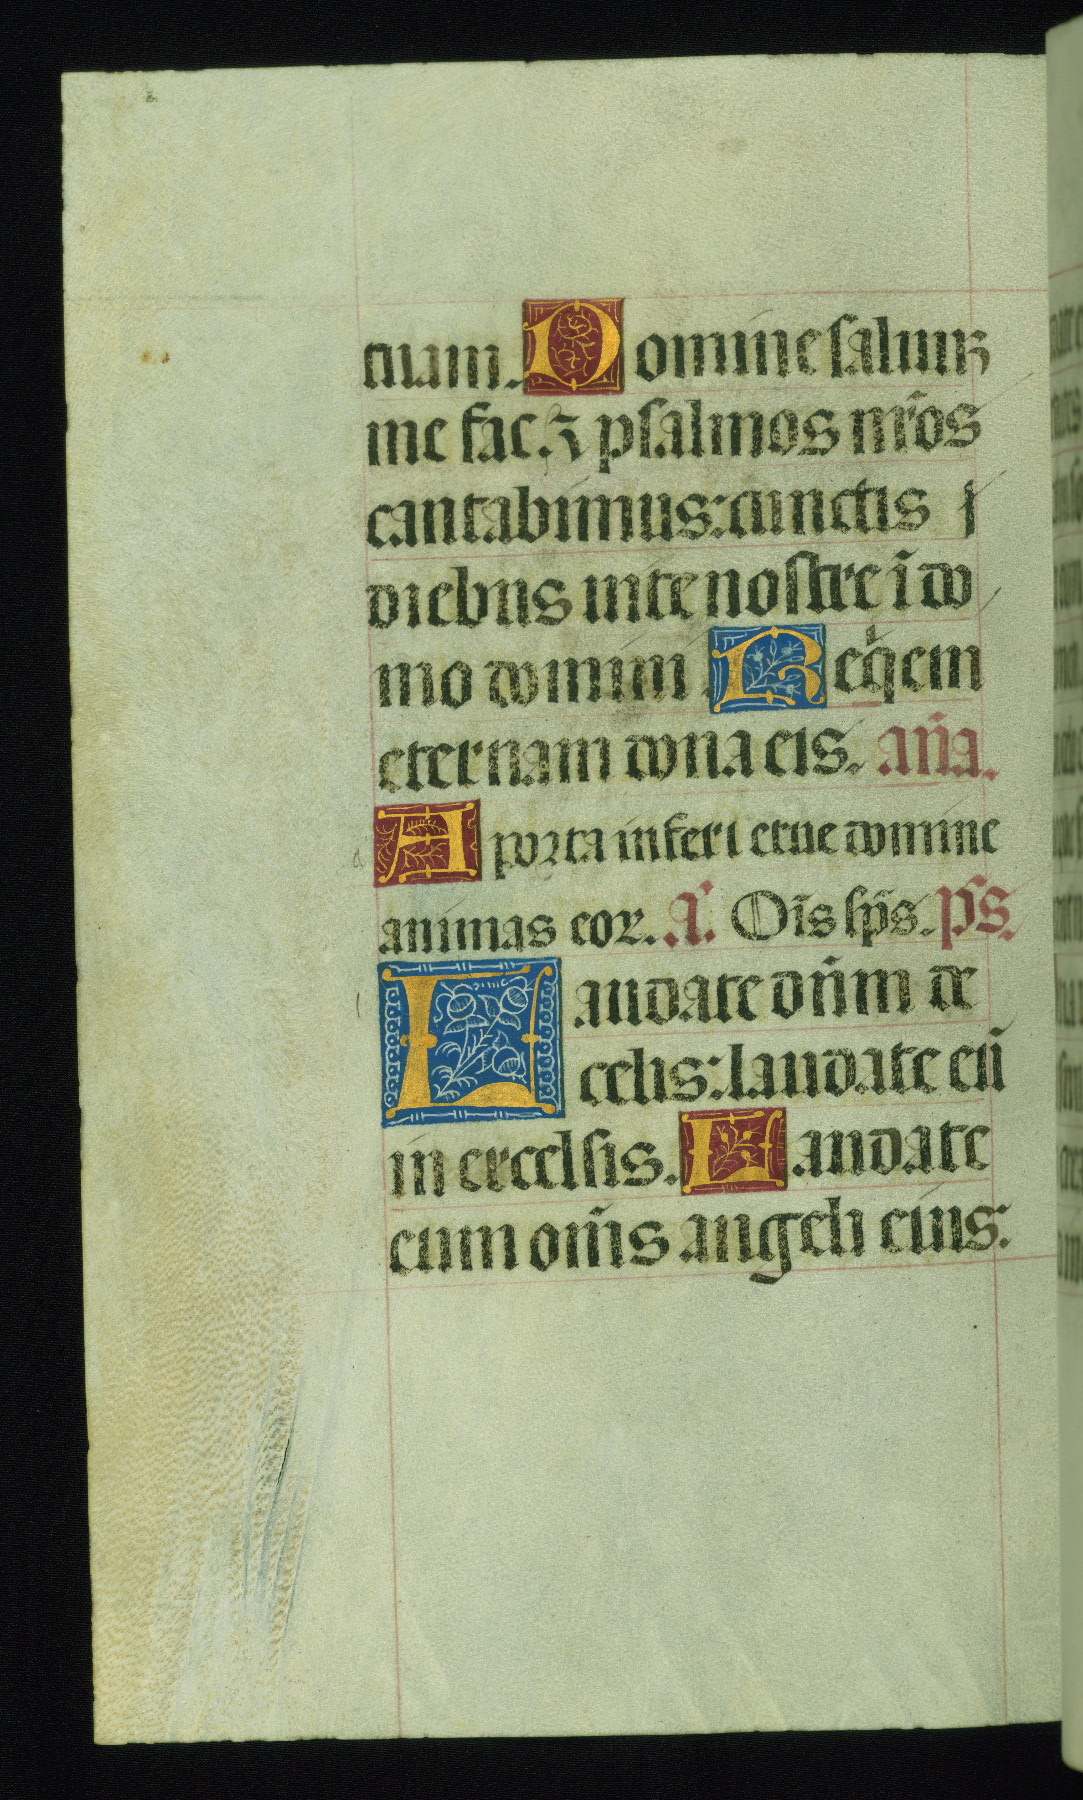 tuam. Domine saluum
me fac. ⁊ psalmos nr̄os
cantabimus: cunctis
diebus uite nostre ī do
mo domini. Requiem
eternam dona eis. An̄a.
A porta inferi erue domine
animas eoꝝ. A. Oīs sp̄s. p̄s.
Laudate dn̄m de
celis: laudate eū
in excelsis. Laudate
eum om̄s angeli eius: